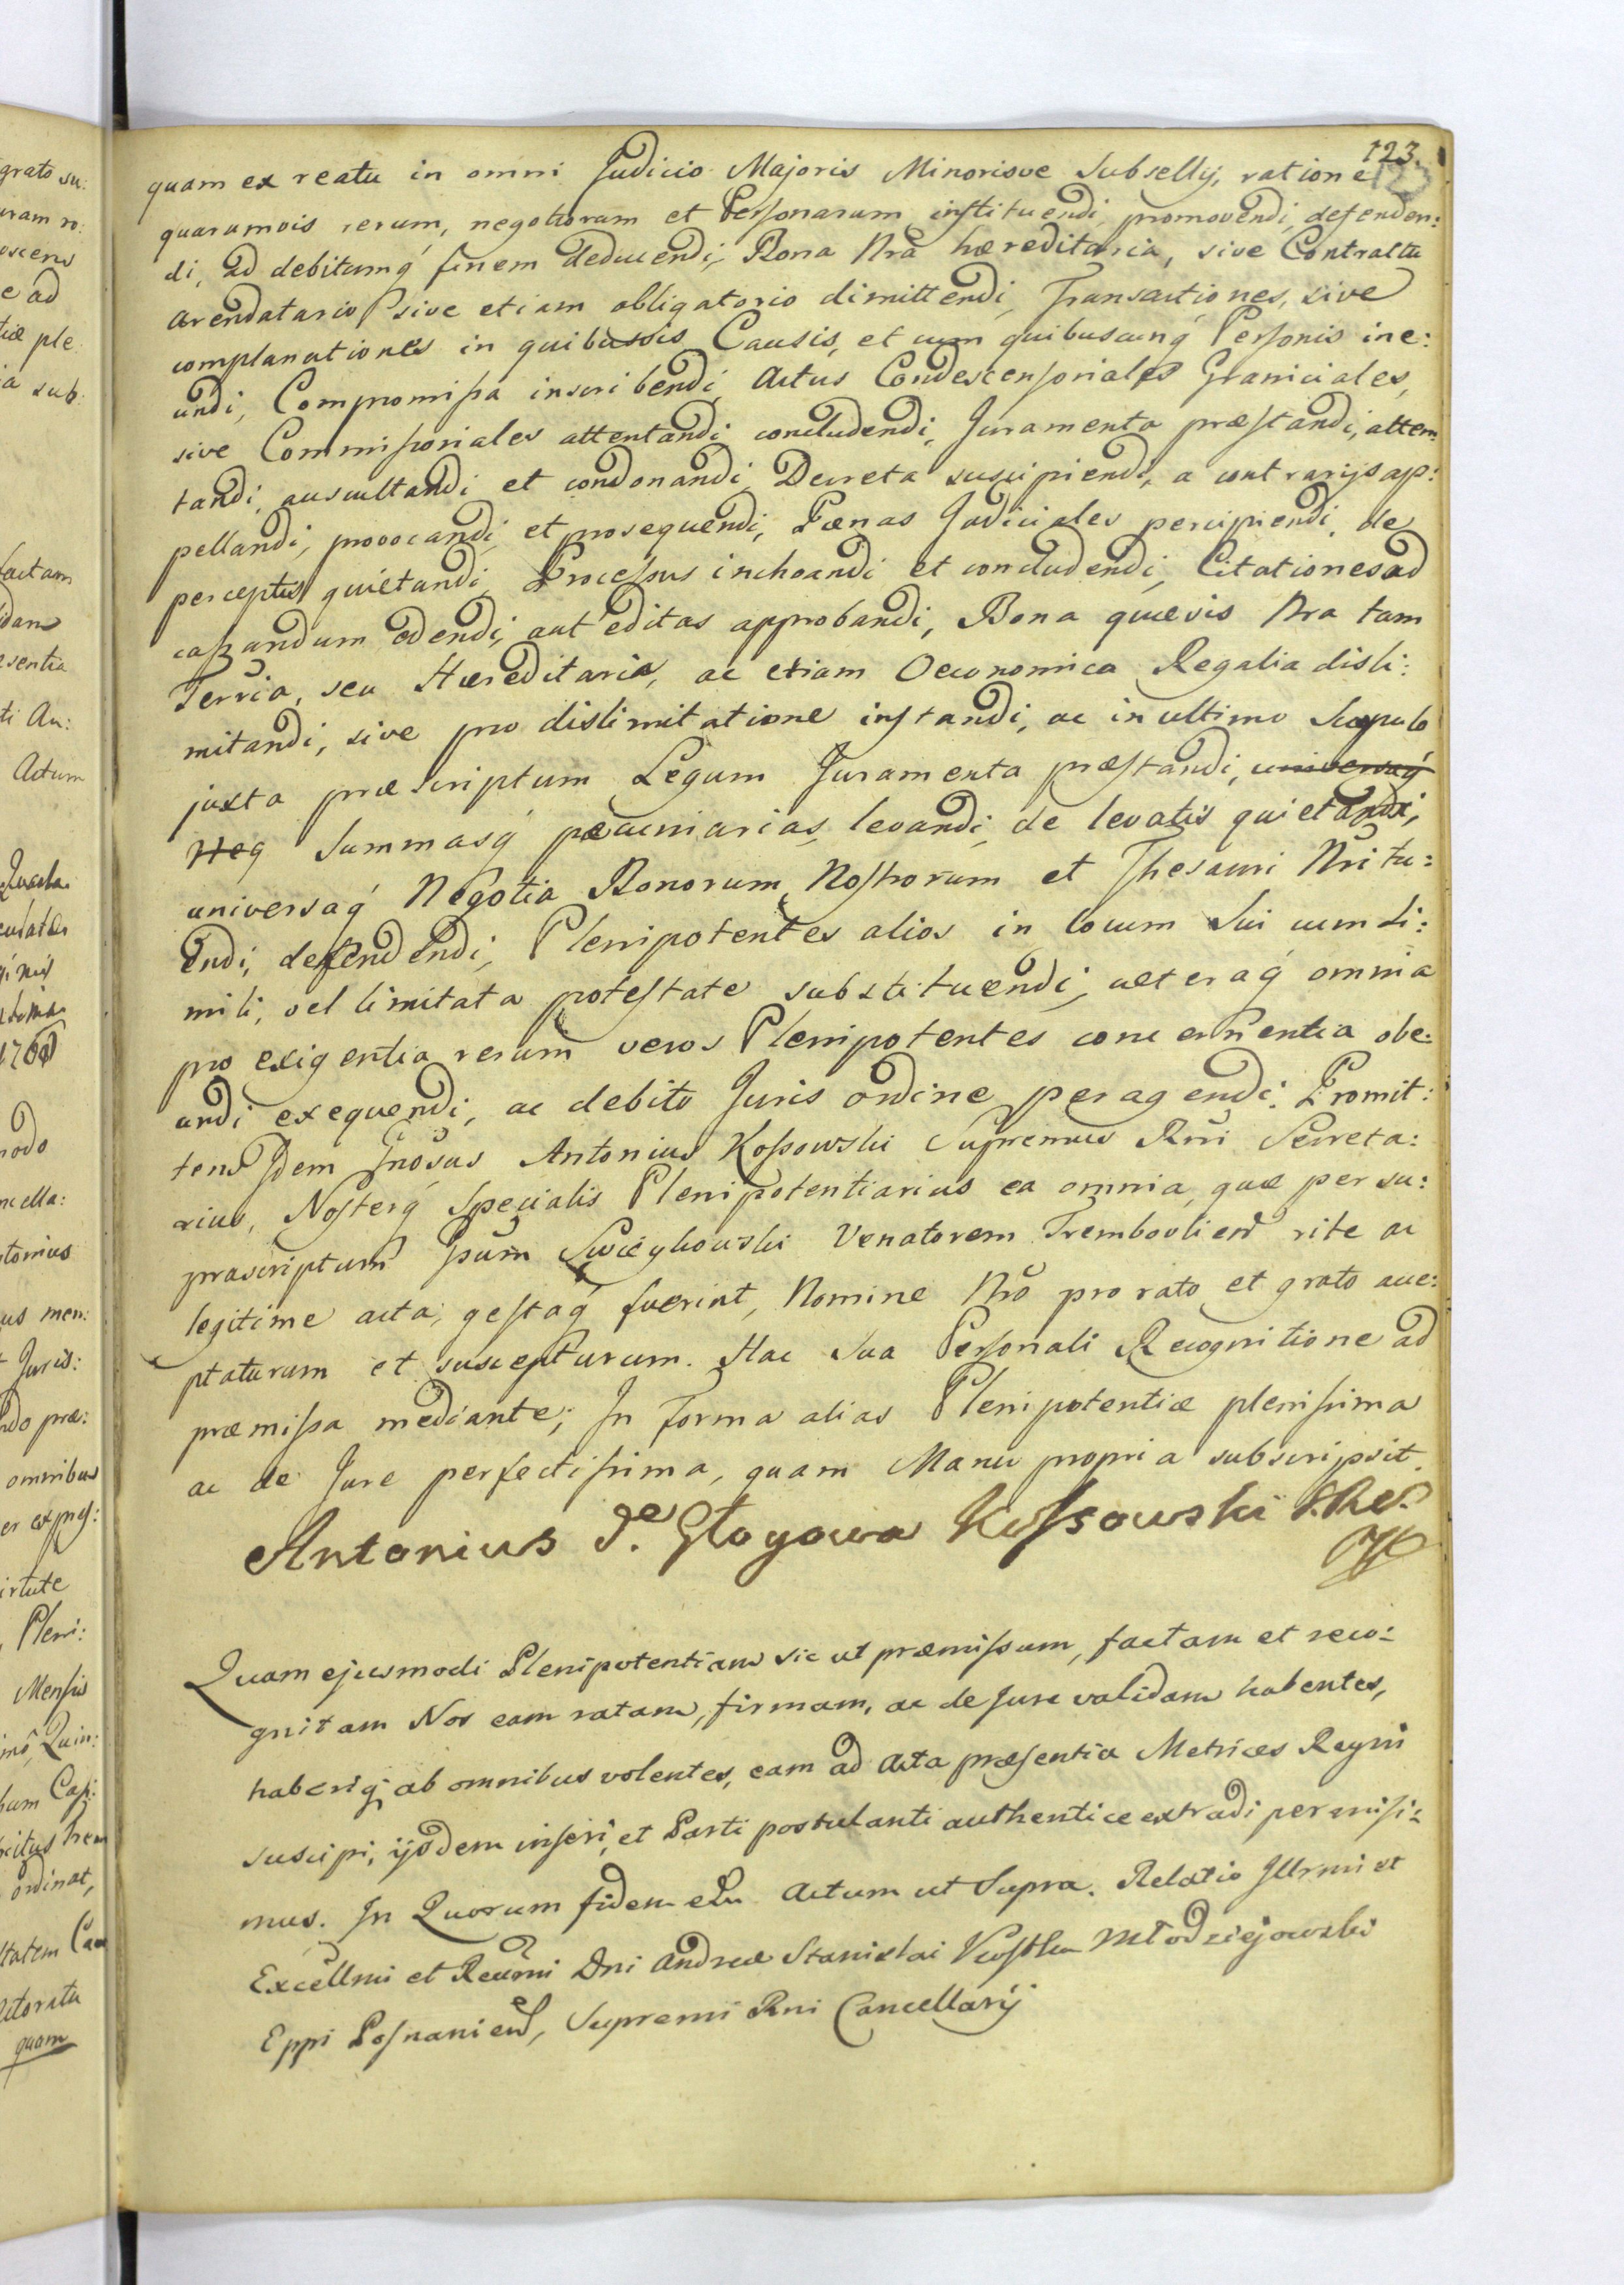 123.
quam ex reatu in omni Judicio Majoris Minorisve Subsellÿ, ratione
quarumvis rerum, negotiorum et Personarum instituendi, promovendi, defenden:
di, ad debitumq́ finem deducendi, Bona Nra hæreditaria, sive Contractu
arendatario sive etiam obligatorio dimittendi, Transactiones, sive
complanationes in quibusvis Causis, et cum quibuscunq́ Personis ine:
undi, Compromissa inscribendi, Actus Condescensoriales Graniciales,
sive Commissoriales attentandi, concludendi, Juramenta præstandi, atten:
tandi, auscultandi et condonandi, Decreta suscipiendi, a contrarÿs ap:
pellandi, provocandi, et prosequendi, Pœnas Judiciales percipiendi, de
perceptis quietandi, Processus inchoandi et concludendi, Citationes ad
cassandum edendi, aut editas approbandi, Bona quævis Nra tam
Terria, seu Hæreditaria, ac etiam Oeconomica Regalia disli:
mitandi, sive pro dislimitatione instandi, ac in ultimo Scopulo
juxta præscriptum Legum Juramenta præstandi, universaq́
Neg Summasq́ pæcuniarias, levandi, de levatis quietandi,
universaq́ Negotia Bonorum Nostrorum et Thesauri Nri tu:
endi, defendendi, Plenipotentes alios in locum Sui cum si:
mili, vel limitata potestate substituendi, cæteraq́ omnia
pro exigentia rerum veros Plenipotentes concernentia obe:
undi exequendi, ac debito Juris ordine peragendi. Promit:
tens Idem Gnosus Antonius Kossowski Supremus Rni Secreta:
rius, Nosterq́ Specialis Plenipotentiarius ea omnia, quæ per su:
prascriptum Gsum Swieykowski Venatorem Trembovlien rite ac
legitime acta, gestaq́ fuerint, Nomine Nro pro rato et grato acce:
ptaturum et suscepturum. Hac Sua Personali Recognitione ad
præmissa mediante; In Forma alias Plenipotentiæ plenissima
ac de Jure perfectissima, quam Manu propria subscripsit.
Antonius de Głogowa Kossowski
Quam ejusmodi Plenipotentiam sic ut præmissum, factam et reco:
gnitam Nos eam ratam, firmam, ac de Jure validam habentes,
haberiq́ ab omnibus volentes, eam ad Acta præsentia Metrices Regni
suscipi, ijsdem inseri, et Parti postulanti authentice extradi permisi:
mus. In Quorum fidem etc. Actum ut Supra. Relatio Illrmi et
Excellmi et Revermi Dni Andreæ Stanislai Kostka Młodziejowski
Eppi Posnanien, Supremi Rni Cancellarÿ